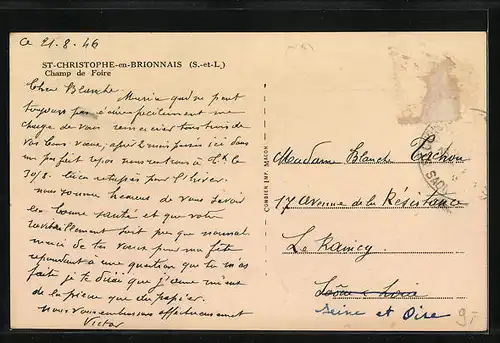 ce 21.8.46
ST-CHRISTOPHE-en-BRIONNAIS (S.-et-L.)
Champ de Foire
Chère Blanche. Marie qui ne peut
toujours pas écrire facilement me
charge de vous remercier tous trois de
vos bons vœux; après avoir passé ici dans
un parfait repos nous rentrons à
30/8. bien retapés pour l'hiver.
nous sommes heureux de vous savoir
en bonne santé et que votre
soit pas que normal
merci de tes vœux pour ma fête
répondant à une question que tu m'as
faite je te dirai que j'aime mieux
de la pierre que du papier.
nous vous embrassons affectueusement
Victor
COMBIER IMP. MACON
Madame Blanche Cochon
17 avenue de la Résistance
Le Raincy
Seine et Oise
9.-